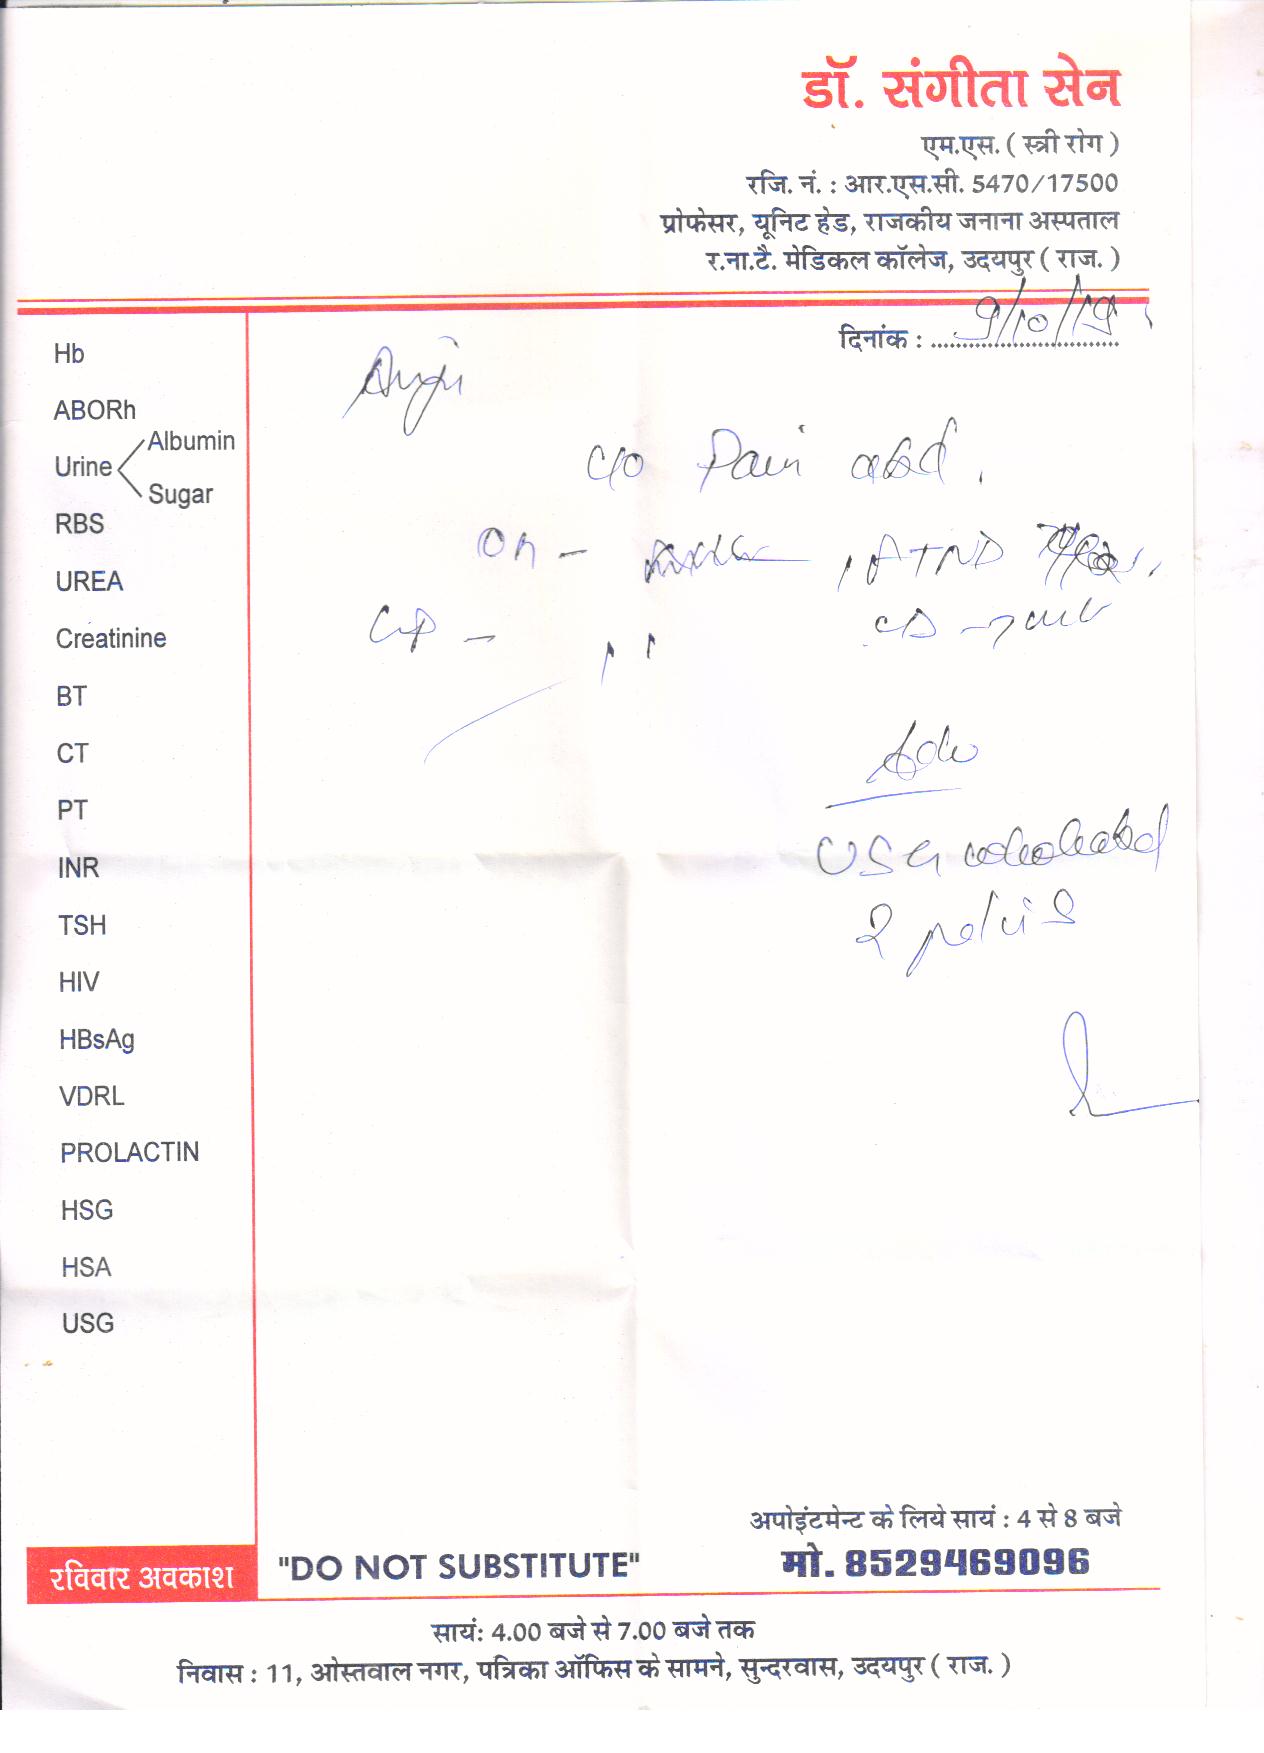 डॉ. संगीता सेन
एम.एस. ( स्त्री रोग )
रजि. नं. : आर.एस.सी. 5470/17500
प्रोफेसर, यूनिट हेड, राजकीय जनाना अस्पताल
र.ना.टै. मेडिकल कॉलेज, उदयपुर ( राज. )
दिनांक : 9/10/19
Hb
ABORh
Urine Albumin
Sugar
RBS
UREA
Creatinine
BT
CT
PT
INR
TSH
HIV
HBsAg
VDRL
PROLACTIN
HSG
HSA
USG
c/o Pain abd.
Adv
USG whole abd
pelvis
रविवार अवकाश
"DO NOT SUBSTITUTE"
अपोइंटमेन्ट के लिये सायं : 4 से 8 बजे
मो. 8529469096
सायं: 4.00 बजे से 7.00 बजे तक
निवास : 11, ओस्तवाल नगर, पत्रिका ऑफिस के सामने, सुन्दरवास, उदयपुर ( राज. )